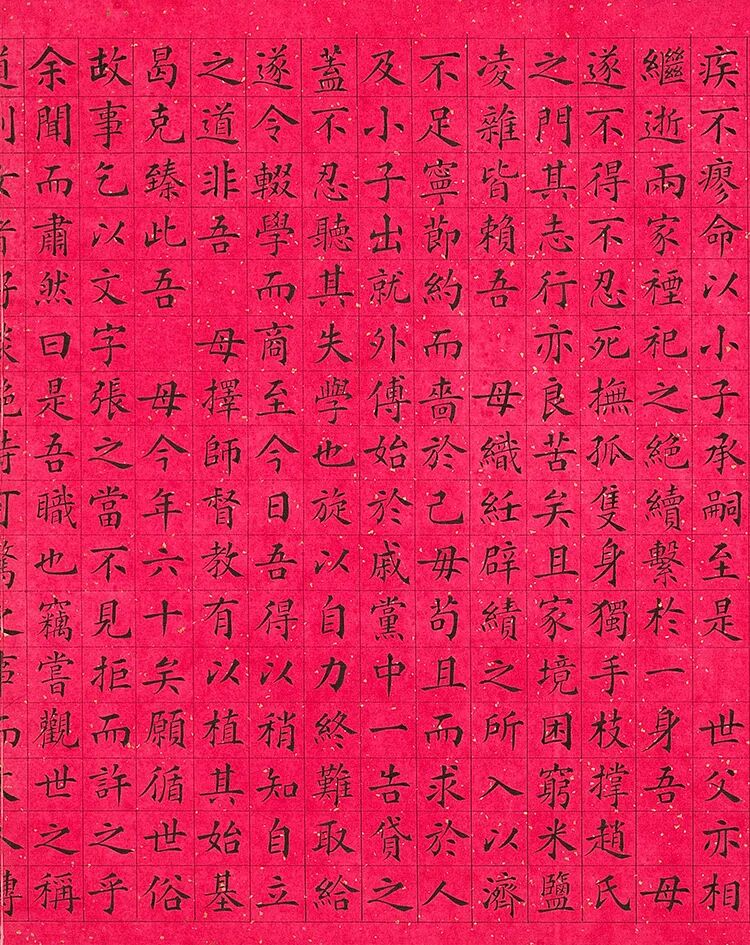 疾不瘳命以小子承嗣至是 世父亦相
繼逝兩家禋祀之絕續繫於一身吾 母
遂不得不忍死撫孤隻身獨手枝撐趙氏
之門其志行亦良苦矣且家境困窮米鹽
凌雜皆賴吾 母織紝辟績之所入以濟
不足寧節約而嗇於己毋苟且而求於人
及小子出就外傅始於戚黨中一告貸之
蓋不忍聽其失學也旋以自力終難取給
遂令輟學而商至今日吾得以稍知自立
之道非吾 母擇師督教有以植其始基
曷克臻此吾 母今年六十矣願循世俗
故事乞以文字張之當不見拒而許之乎
余聞而肅然曰是吾職也竊嘗觀世之稱